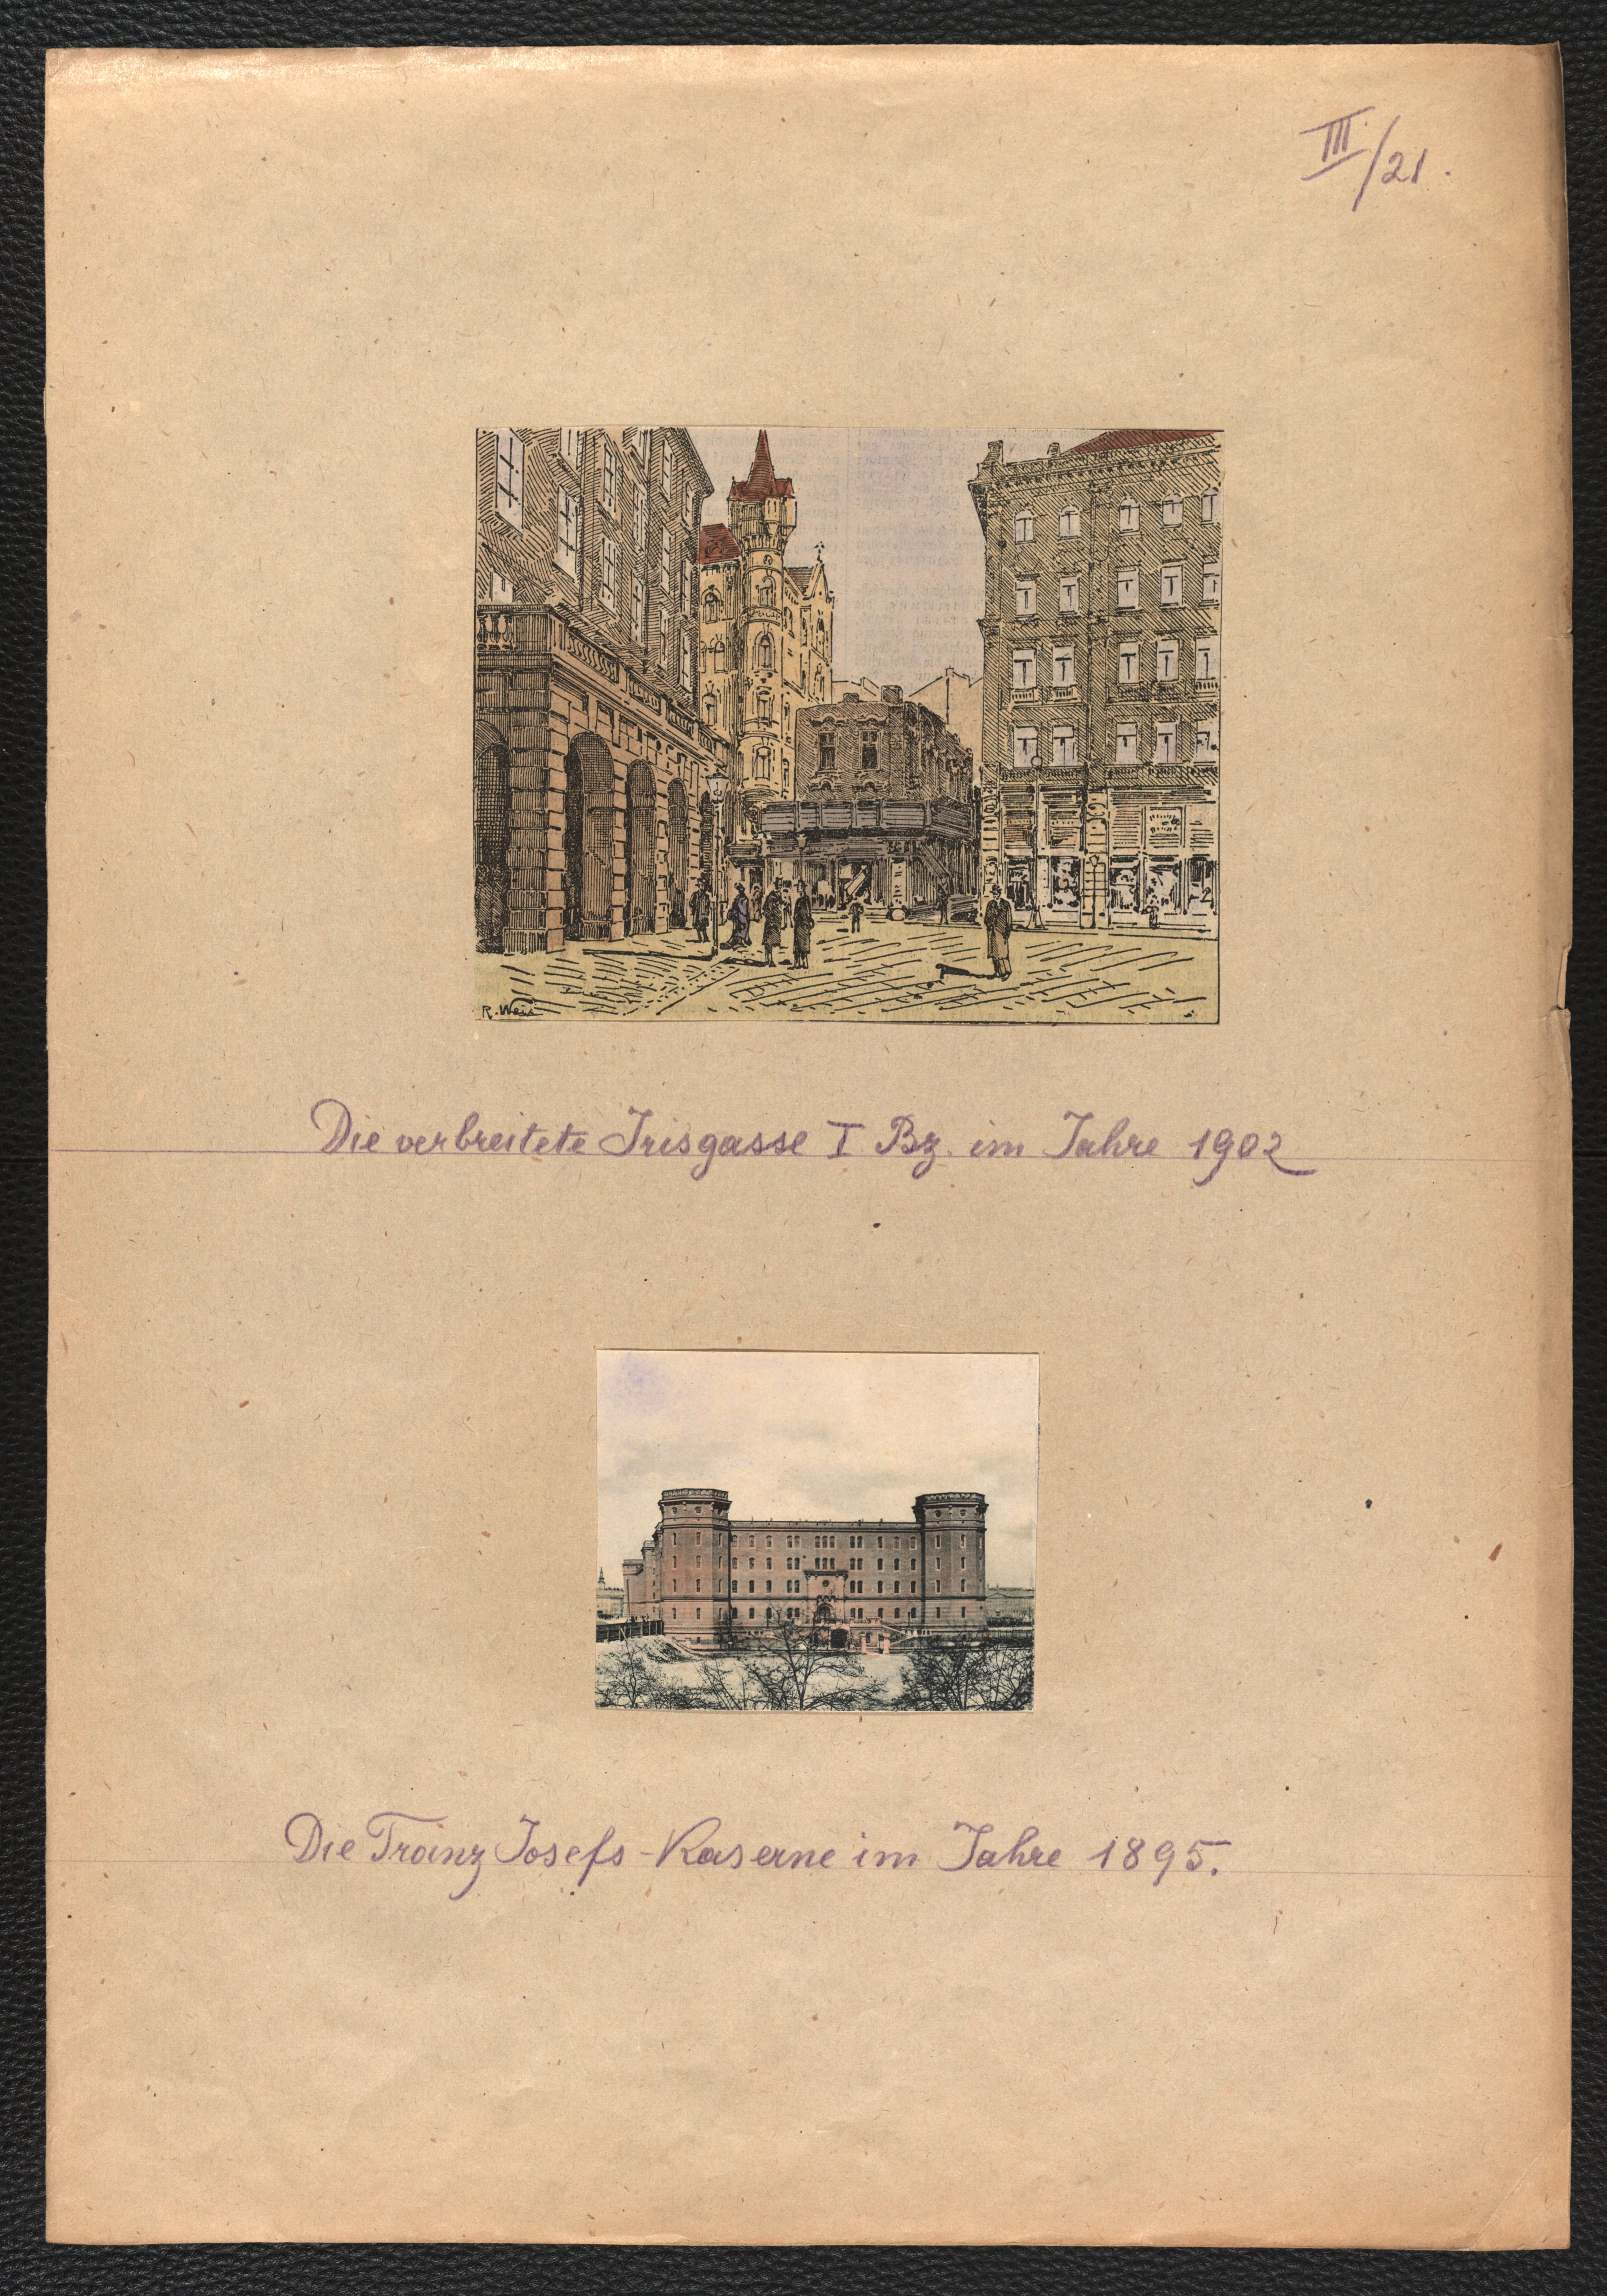 III/21.
R. Weis
Die verbreitete Irisgasse I Bz. im Jahre 1902
Die Franz Josefs-Kaserne im Jahre 1895.